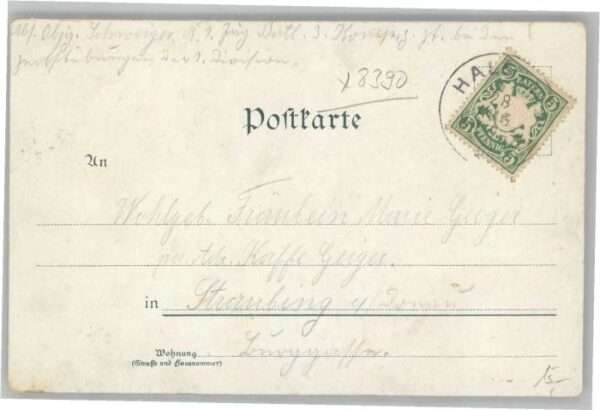 Abs. Objg. Schweiger, K. 1. Zug Batl. 3. Komp. zt. bei den
der 1. Division.
x8390
HAI
5
Postkarte
An
Wohlgeb. Fräulein Marie Geiger
per Adr. Kaffe Geiger.
in Straubing a/Donau
Wohnung
(Straße und Hausnummer)
Burggasse.
15,-